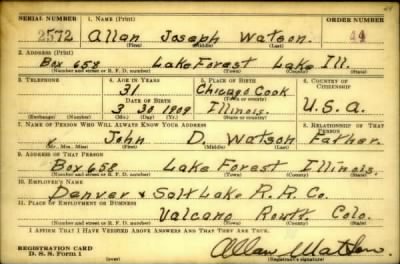 SERIAL NUMBER 1. NAME (Print) ORDER NUMBER
2572 Allan Joseph Watson
(First) (Middle) (Last)
2. ADDRESS (Print)
Box 658 Lake Forest Lake Ill.
(Number and street or R. F. D. number) (Town) (County) (State)
3. TELEPHONE 4. AGE IN YEARS 5. PLACE OF BIRTH 6. COUNTRY OF CITIZENSHIP
31 Chicago Cook
DATE OF BIRTH (Town or county)
3 30 1909 Illinois. U.S.A.
(Exchange) (Number) (Mo.) (Day) (Yr.) (State or country)
7. NAME OF PERSON WHO WILL ALWAYS KNOW YOUR ADDRESS 8. RELATIONSHIP OF THAT PERSON
John D. Watson Father.
(Mr., Mrs., Miss) (First) (Middle) (Last)
9. ADDRESS OF THAT PERSON
Box 658 Lake Forest Illinois.
(Number and street or R. F. D. number) (Town) (County) (State)
10. EMPLOYER'S NAME
Denver & Salt Lake R.R. Co.
11. PLACE OF EMPLOYMENT OR BUSINESS
Volcano Routt Colo.
(Number and street or R. F. D. number) (Town) (County) (State)
I AFFIRM THAT I HAVE VERIFIED ABOVE ANSWERS AND THAT THEY ARE TRUE.
REGISTRATION CARD
D. S. S. Form 1 (over) Allan Watson
(Registrant's signature)